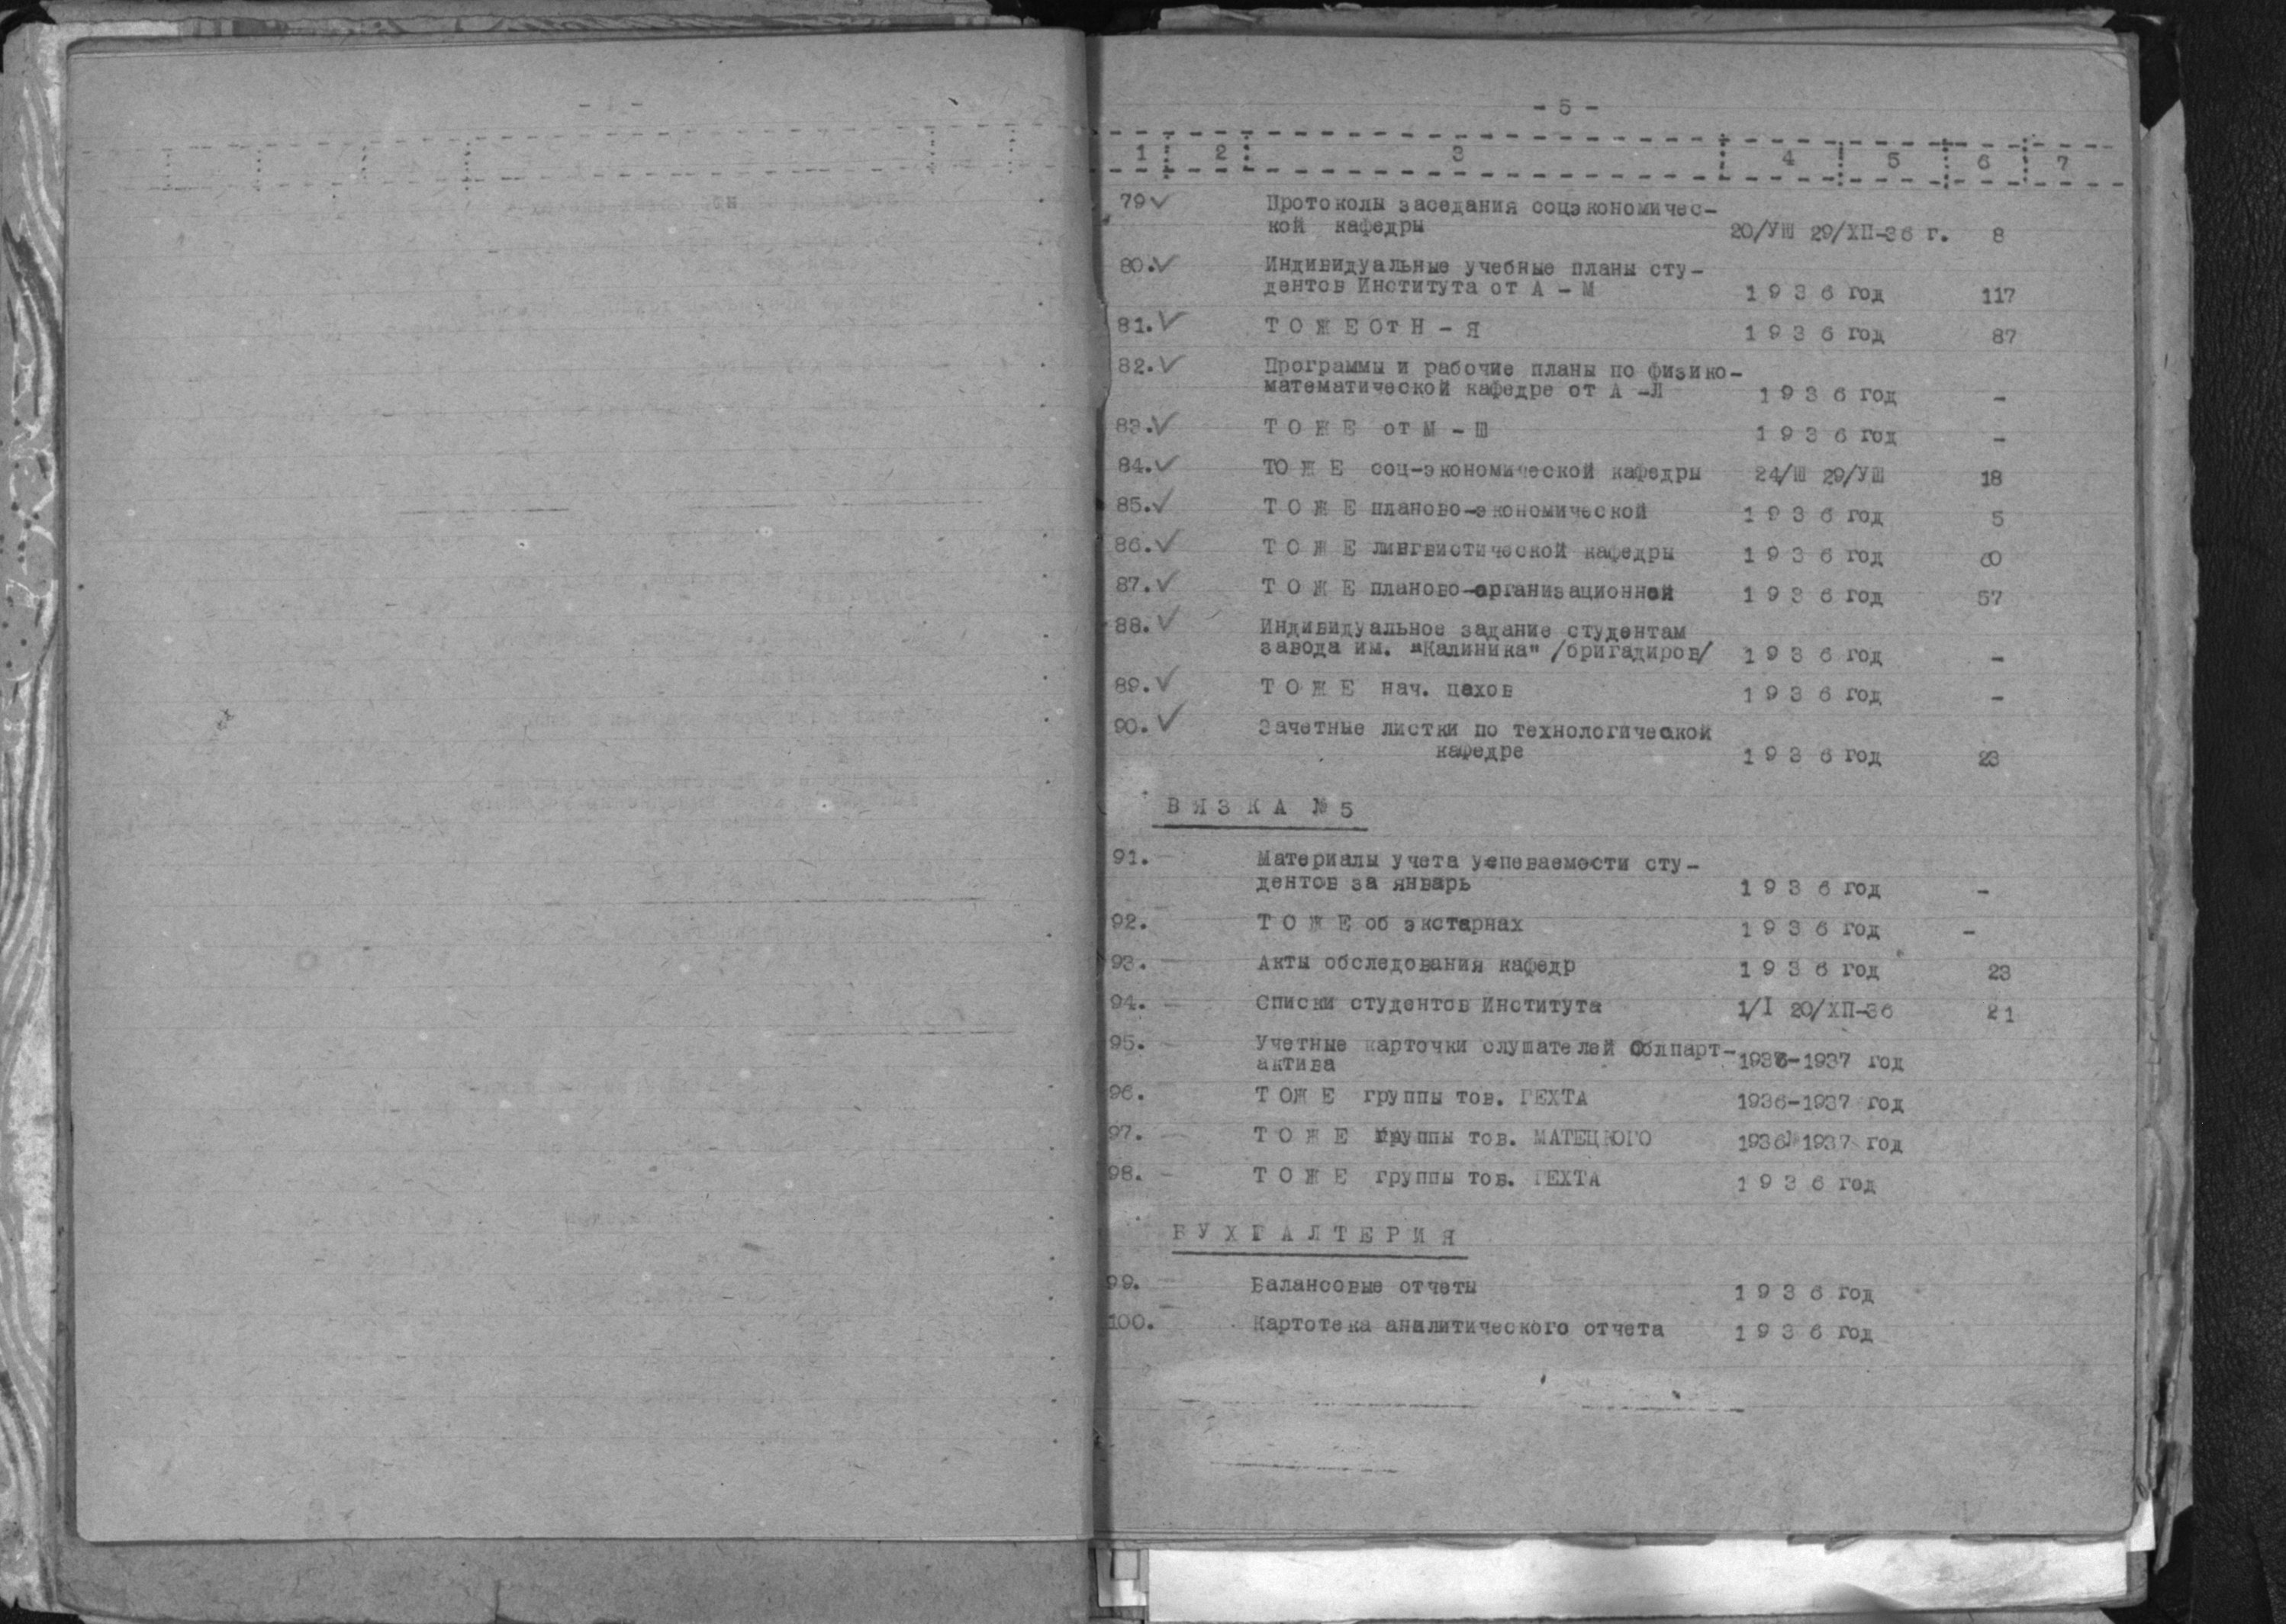 - 5 -
1 2 3 4 5 6 7
79 ✓ Протоколы заседания соцэкономичес-
кой кафедры 20/УШ 29/ХП-36 г. 8
80. ✓ Индивидуальные учебные планы сту-
дентов Института от А - М 1 9 3 6 год 117
81. ✓ Т О Ж Е От Н - Я 1 9 3 6 год 87
82. ✓ Программы и рабочие планы по физико-
математической кафедре от А -Л 1 9 3 6 год -
83. ✓ Т О Ж Е от М - Ш 1 9 3 6 год -
84. ✓ ТО Ж Е соц-экономической кафедры 24/Ш 29/УШ 18
85. ✓ Т О Ж Е планово-экономической 1 9 3 6 год 5
86. ✓ Т О Ж Е лингвистической кафедры 1 9 3 6 год 60
87. ✓ Т О Ж Е планово-организационной 1 9 3 6 год 57
88. ✓ Индивидуальное задание студентам
завода им. "Калиника" /бригадиров/ 1 9 3 6 год -
89. ✓ Т О Ж Е нач. цехов 1 9 3 6 год -
90. ✓ Зачетные листки по технологической
кафедре 1 9 3 6 год 23
В Я З К А № 5
91. - Материалы учета успеваемости сту-
дентов за январь 1 9 3 6 год -
92. - Т О Ж Е об экстернах 1 9 3 6 год -
93. - Акты обследования кафедр 1 9 3 6 год 23
94. - Списки студентов Института 1/I 20/ХП-36 21
95. - Учетные карточки слушателей Облпарт-
актива 1936-1937 год
96. - Т ОЖ Е группы тов. ГЕХТА 1936-1937 год
97. - Т О Ж Е группы тов. МАТЕЦКОГО 1936-1937 год
98. - Т О Ж Е группы тов. ГЕХТА 1 9 3 6 год
Б У Х Г А Л Т Е Р И Я
99. - Балансовые отчеты 1 9 3 6 год
100. - Картотека аналитического отчета 1 9 3 6 год